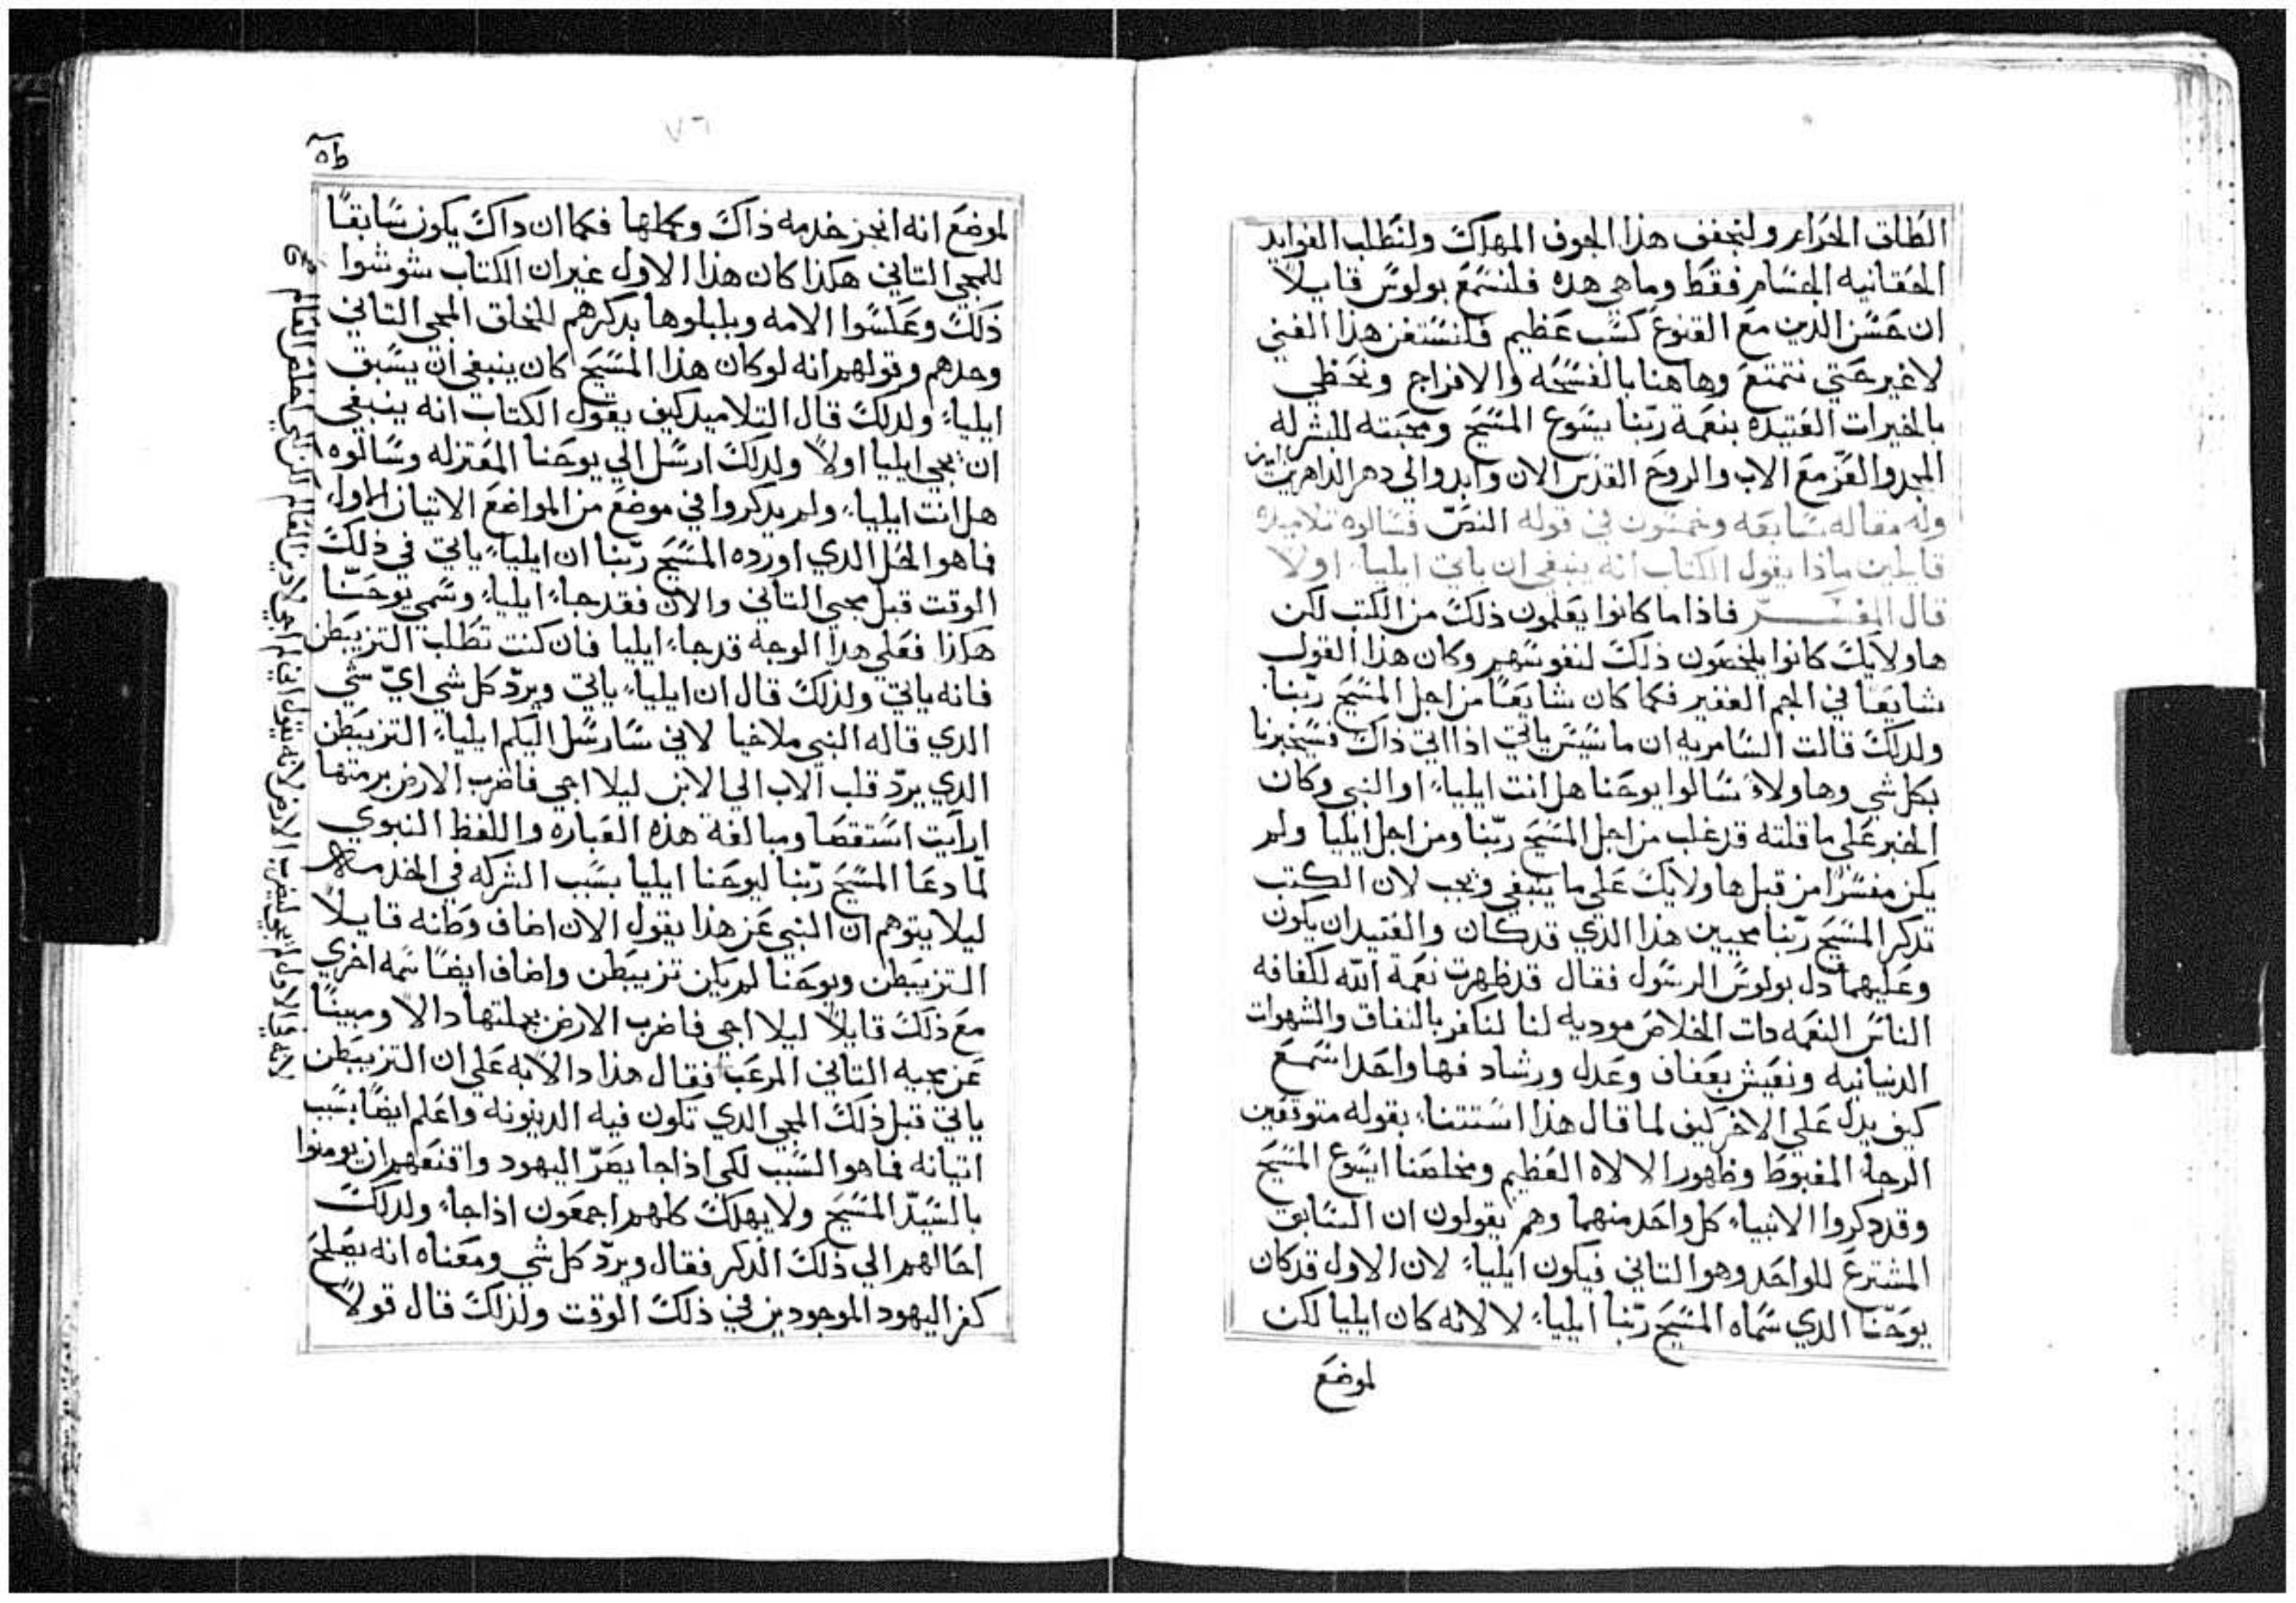 الطلق الحرام ولنخفف هذا الخوف المهلك ولنطلب الفوايد
الحقانيه الجسام فقط وما هي هذه فلنسمع بولوس قايلاً
ان حسن الدين مع القنوع كسب عظيم فلنستغن هذا الغني
لا غير حتي نتمتع وهاهنا بالفسحه والافراج ونحظي
بالخيرات العتيده بنعمة ربّنا يسوع المسيح ومحبته للبشر له
المجد والعز مع الاب والروح القدس الان وابدا والي دهر الداهرين امين
وله مقاله سابعه وخمسون في قوله النصّ فسالوه تلاميذه
قايلين ماذا يقول الكتاب انه ينبغي ان ياتي ايلياء اولا
قال المفسّر فاذا ما كانوا يعلمون ذلك من الكتب لكن
هاولايك كانوا يلخصون ذلك لنفوسهم وكان هذا القول
شايعا في الجم الغفير فكما كان شايعًا من اجل المسيح ربّنا
ولدلك قالت السامريه ان ماسيس ياتي اذا اتي ذاك فسيخبرنا
بكل شي وهاولاء سالوا يوحنا هل انت ايلياء او النبي وكان
الخبر علي ما قلته قد غلب من اجل المسيح ربّنا ومن اجل ايليا ولم
يكن مفسرًا من قبل هاولايك علي ما ينبغي ويجب لان الكتب
تذكر المسيح ربّنا مجيين هذا الذي قد كان والعتيد ان يكون
وعليهما دل بولوس الرسول فقال قد ظهرت نعمة الله لكافة
الناس النعمه دات الخلاص موديه لنا لنكفر بالنفاق والشهوات
الدنيانيه ونعيش بعفاف وعدل ورشاد فها واحدا اسمع
كيف يدل علي الاخر كيف لما قال هذا استتنا بقوله متوقعين
الرجاء المغبوط وظهور الالاه العظيم ومخلصنا ايسوع المسيح
وقد ذكروا الانبياء كل واحد منهما وهم يقولون ان السابق
المشترع للواحد وهو التاني فيكون ايلياء لان الاول قد كان
يوحّنا الدي سماه المسيح ربّنا ايلياء لا لانه كان ايليا لكن
لموضع
٧٦
لموضع انه انجز خدمه ذاك وبكملها فكما ان داك يكون سابقاً
للمجي التاني هكذا كان هذا الاول غير ان الكتاب شوشوا
ذلك وعكسوا الامه وبلبلوها بدكرهم للخلق المجي التاني
وحدهم وقولهم انه لو كان هذا المسيح كان ينبغي ان يسبق
ايلياء ولدلك قال التلاميد كيف يقول الكتاب انه ينبغي
ان يجي ايليا اولاً ولدلك ارسل الي يوحنا المعتزله وسالوه
هل انت ايلياء ولم يدكروا في موضع من المواضع الاتيان الاول
فما هو الحل الدي اورده المسيح ربّنا ان ايلياء ياتي في ذلك
الوقت قبل مجي التاني والان فقد جاء ايلياء وسمي يوحّنا
هكذا فعلي هدا الوجه قد جاء ايليا فان كنت تطلب التزبيطن
فانه ياتي ولدلك قال ان ايلياء ياتي ويردّ كل شي ايّ شي
الدي قاله النبي ملاخيا لاني سارسل اليكم ايلياء التزبيطن
الدي يردّ قلب الاب الي الابن ليلا اجي فاضرب الارض برمتها
ارايت استقصا ومبالغة هذه العباره واللفظ النبوي
لمّا دعا المسيح ربّنا ليوحنا ايليا بسبب الشركه في الخدمه
ليلا يتوهم ان النبي عن هذا يقول الان اضاف وطنه قايلاً
التزبيطن ويوحنا لم يكن تزبيطن واضاف ايضًا سمه اخري
مع ذلك قايلاً ليلا اجي فاضرب الارض بجملتها دالا ومبيناً
عن مجيه التاني المرعب فقال هذا دالا به علي ان التزبيطن
ياتي قبل ذلك المجي الدي تكون فيه الدينونه واعلم ايضًا بسبب
اتيانه فما هو السبب لكي اذا جا يصدّ اليهود واقنعهم ان يومنوا
بالسيّد المسيح ولا يهلك كلهم اجمعون اذا جاء ولدلك
احالهم الي ذلك الدكر فقال ويردّ كل شي ومعناه انه يصلح
كفر اليهود الموجودين في ذلك الوقت ولذلك قال قولاً